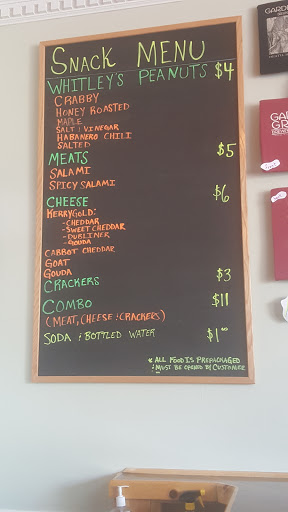 SNACK MENU
WHITLEY'S PEANUTS $4
CRABBY
HONEY ROASTED
MAPLE
SALT & VINEGAR
HABANERO CHILI
SALTED
MEATS $5
SALAMI
SPICY SALAMI
CHEESE $6
KERRYGOLD:
-CHEDDAR
-SWEET CHEDDAR
-DUBLINER
-GOUDA
CABBOT CHEDDAR
GOAT
GOUDA
CRACKERS $3
COMBO $11
(MEAT, CHEESE & CRACKERS)
SODA & BOTTLED WATER $1.00
* ALL FOOD IS PREPACKAGED
& MUST BE OPENED BY CUSTOMER